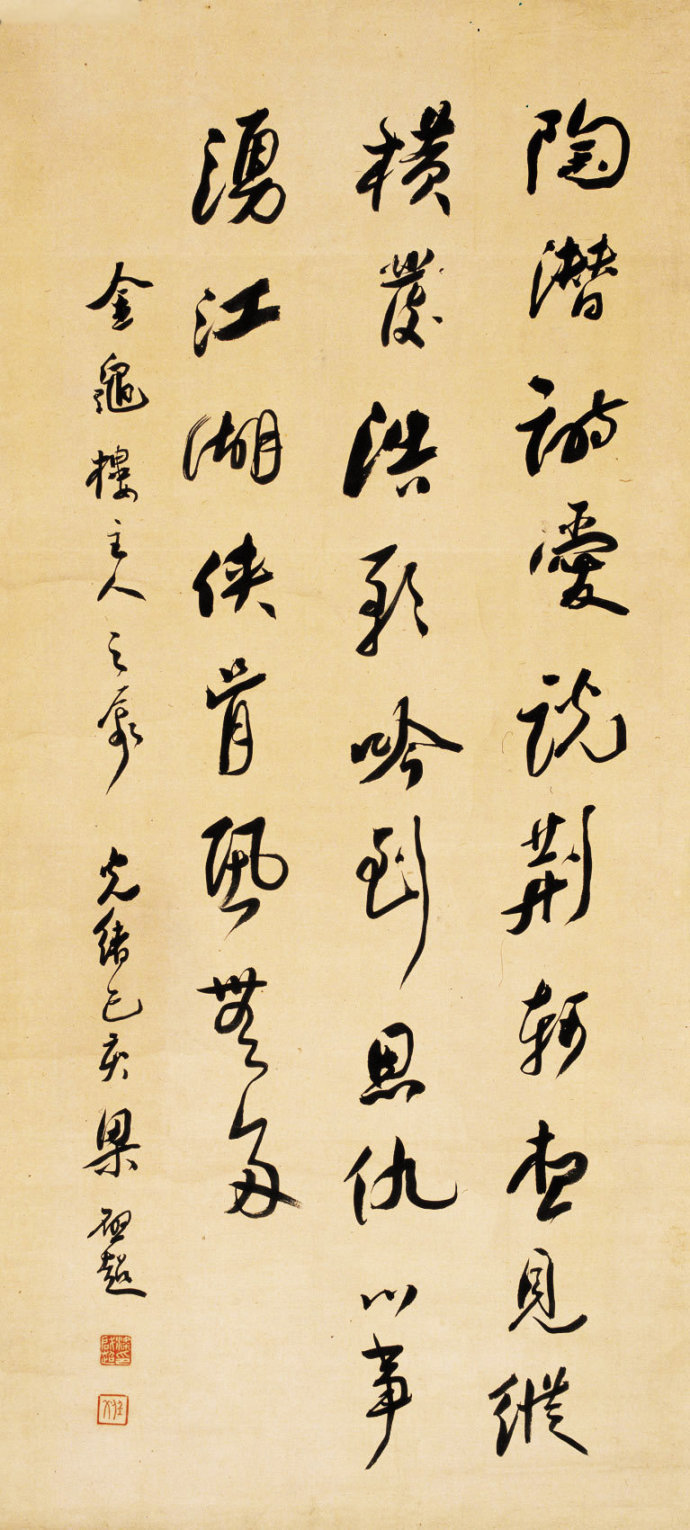 陶潛詩愛說荊軻想見縱
橫發浩歌吟到恩仇心事
湧江湖俠骨恐無多
金龜樓主人之 光緒己亥梁啟超